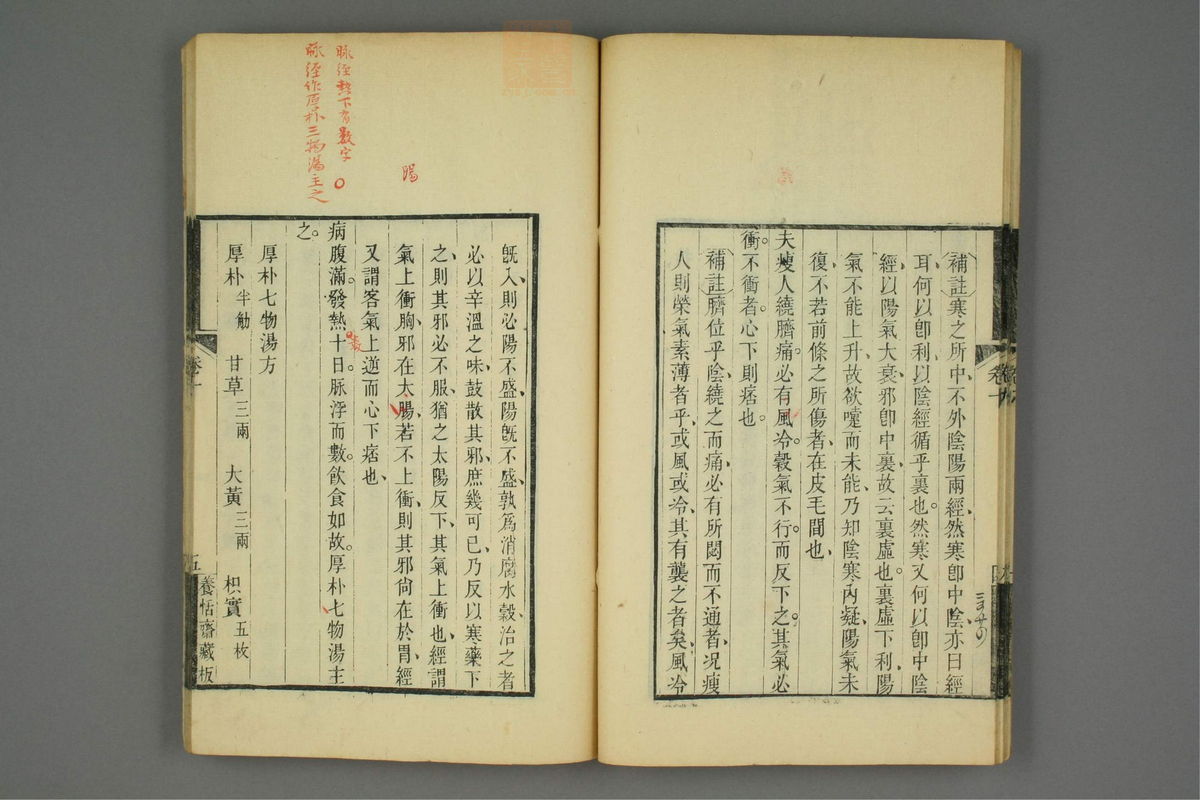 補註寒之所中不外陰陽兩經然寒卽中陰亦曰經
耳何以卽利以陰經循乎裏也然寒又何以卽中陰
經以陽氣大衰邪卽中裏故云裏虛也裏虛下利陽
氣不能上升故欲嚏而未能乃知陰寒內凝陽氣未
復不若前條之所傷者在皮毛間也
夫瘦人繞臍痛必有風冷穀氣不行而反下之其氣必
衝不衝者心下則痞也
補註臍位乎陰繞之而痛必有所悶而不通者况瘦
人則榮氣素薄者乎或風或冷其有襲之者矣風冷
旣入則必陽不盛陽旣不盛孰爲消腐水穀治之者
必以辛溫之味鼓散其邪庶幾可已乃反以寒藥下
之則其邪必不服猶之太陽反下其氣上衝也經謂
氣上衝胸邪在太腸若不上衝則其邪尙在於胃經
又謂客氣上逆而心下痞也
病腹滿發熱十日脉浮而數飮食如故厚朴七物湯主
之
厚朴七物湯方
厚朴半觔 甘草三兩 大黃三兩 枳實五枚
卷十 五 養恬齋藏板
陽
脉經熱下有數字
脉經作厚朴三物湯主之